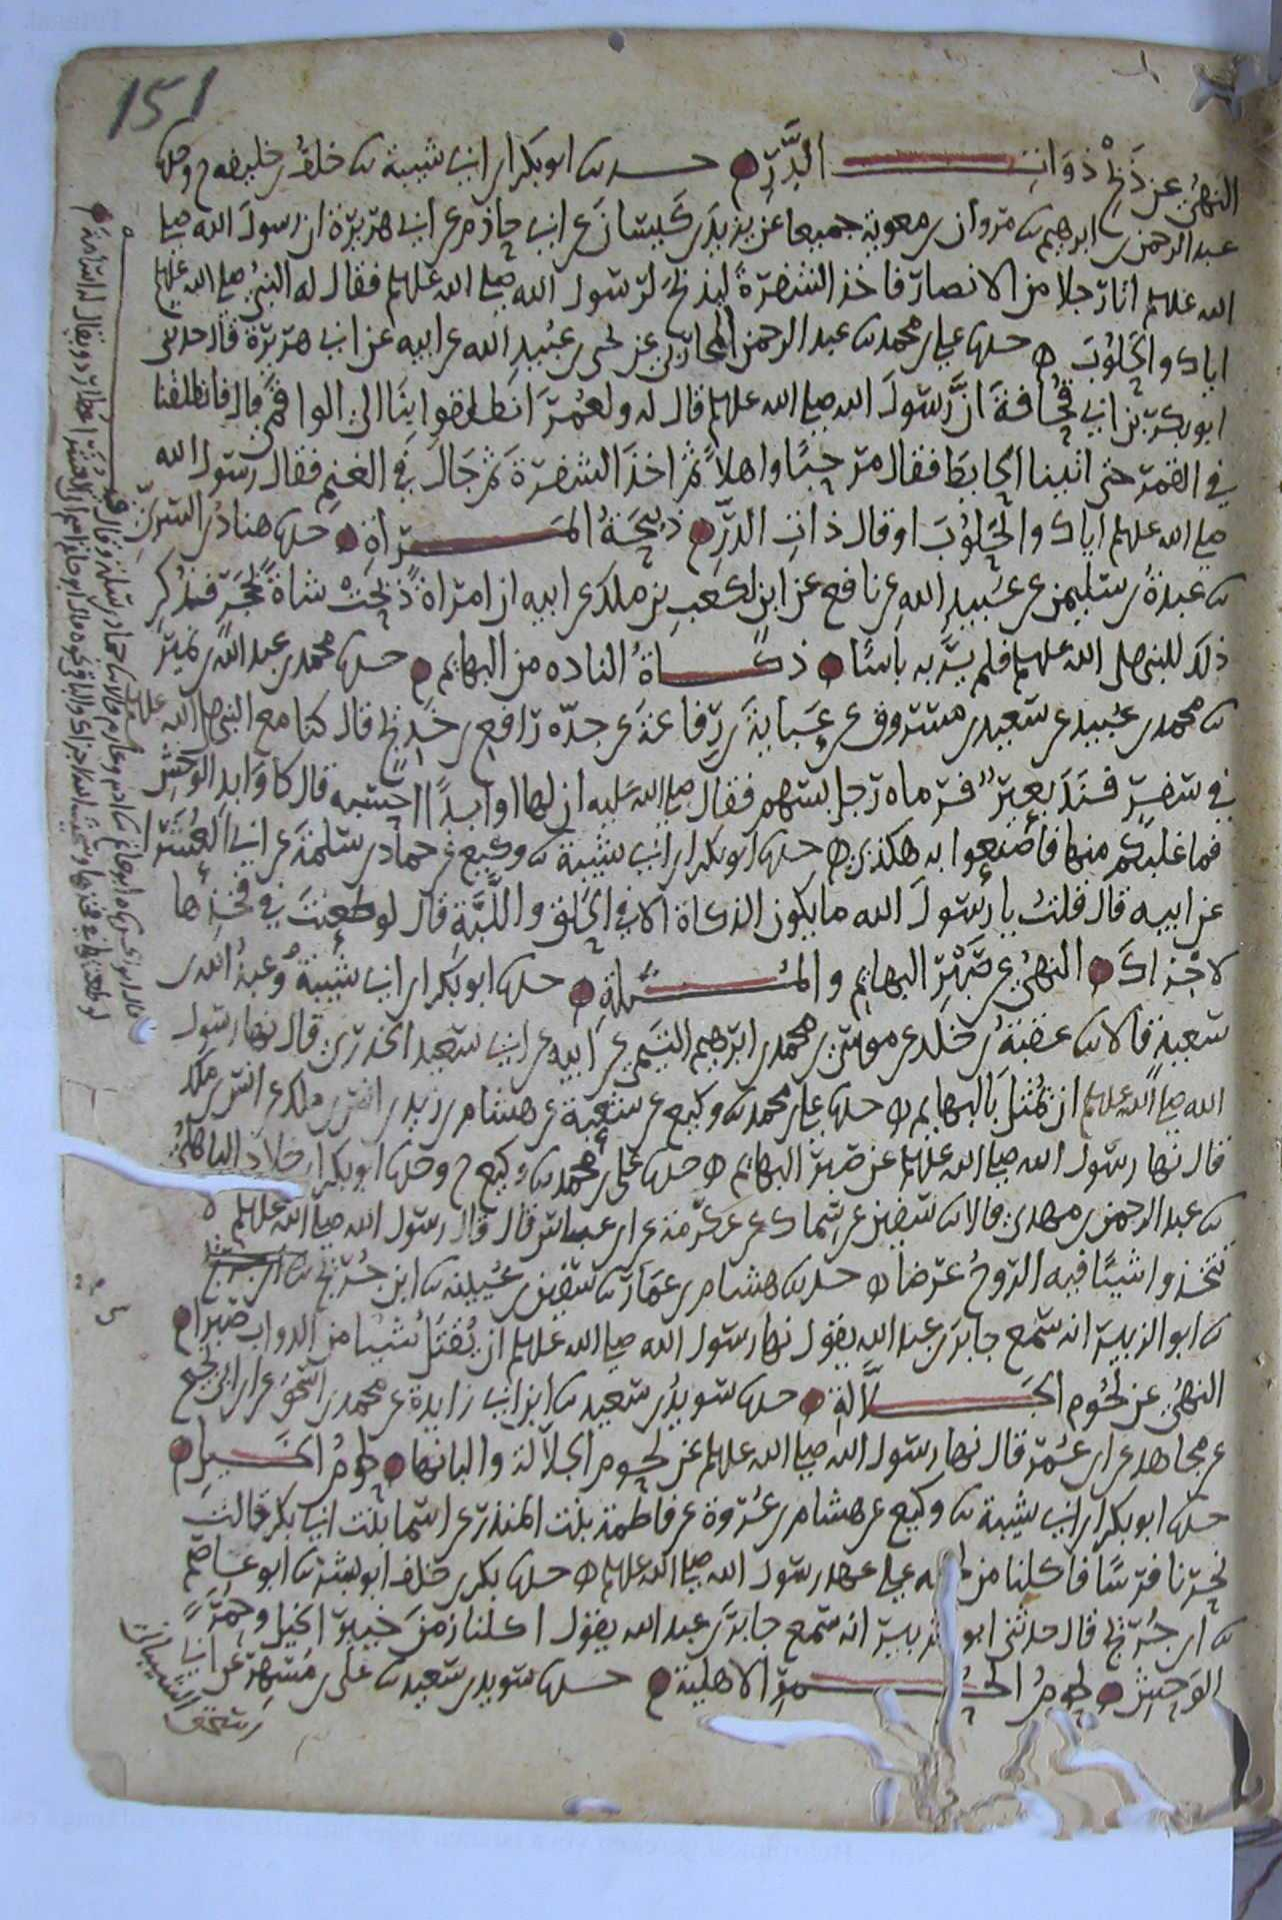 151
النهي عن ذبح ذوات الدر حدثنا ابو بكر ابن ابي شيبة نا خلف بن خليفه ح وحدثنا
عبد الرحمن بن ابرهيم نا مروان بن معوية جميعا عن يزيد بن كيسان عن ابي حازم عن ابي هريرة ان رسول الله صلى
الله عليه وسلم اتا رجلا من الانصار فاخذ الشفرة ليذبح لرسول الله صلى الله عليه وسلم فقال له النبي صلى الله عليه وسلم
اياك والحلوب حدثنا علي بن محمد نا عبد الرحمن المحاربي عن يحيى بن عبيد الله عن ابيه عن ابي هريرة قال حدثني
ابو بكر بن ابي قحافة ان رسول الله صلى الله عليه وسلم قال له ولعمر انطلقوا بنا الى الواقفي قال فانطلقنا
في القمر حتى اتينا الحايط فقال مرحبا واهلا ثم اخذ الشفرة ثم جال في الغنم فقال رسول الله
صلى الله عليه وسلم اياك والحلوب او قال ذات الدر ذبيحة المراة حدثنا هناد بن السري
نا عبدة بن سليمن عن عبيد الله عن نافع عن ابن لكعب بن ملك عن ابيه ان امراة ذبحت شاة بحجر فذكر
ذلك للنبي صلى الله عليه وسلم فلم ير به باسا ذكاة الناده من البهايم حدثنا محمد بن عبد الله بن نمير
نا محمد بن عبيد عن سعيد بن مسروق عن عباية بن رفاعة عن جده رافع بن خديج قال كنا مع النبي صلى الله عليه وسلم
في سفر فند بعير فرماه رجل بسهم فقال صلى الله عليه ان لها اوابدا احسبه قال كاوابد الوحش
فما غلبكم منها فاصنعوا به هكذي حدثنا ابو بكر ابن ابي شيبة نا وكيع عن حماد بن سلمة عن ابي العشرا
عن ابيه قال قلت يا رسول الله ما يكون الذكاة الا في الحلق واللبة قال لو طعنت في فخذها
لاجزاك النهي عن صبر البهايم والمثلة حدثنا ابو بكر ابن ابي شيبة وعبد الله بن
سعيد قالا نا عقبة بن خلد عن موسى بن محمد بن ابرهيم التيمي عن ابيه عن ابي سعيد الخدري قال نها رسول
الله صلى الله عليه وسلم ان تمثل بالبهايم حدثنا علي بن محمد نا وكيع عن شعبة عن هشام بن زيد بن انس بن ملك عن انس بن ملك
قال نها رسول الله صلى الله عليه وسلم عن صبر البهايم حدثنا علي بن محمد نا وكيع ح وحدثنا ابو بكر بن خلاد الباهلي
نا عبد الرحمن بن مهدي قالا نا سفين عن سماك عن عكرمة عن ابن عباس قال قال رسول الله صلى الله عليه وسلم لا
تتخذوا شيئا فيه الروح غرضا حدثنا هشام بن عمار نا سفين بن عيينه نا ابن جريج
نا ابو الزبير انه سمع جابر بن عبد الله يقول نها رسول الله صلى الله عليه وسلم ان يقتل شيئا من الدواب صبرا
النهي عن لحوم الجلالة حدثنا سويد بن سعيد نا ابن ابي زايدة عن محمد بن اسحق عن ابن ابي نجيح
عن مجاهد عن ابن عمر قال نها رسول الله صلى الله عليه وسلم عن لحوم الجلالة والبانها لحوم الخيل
حدثنا ابو بكر ابن ابي شيبة نا وكيع عن هشام بن عروة عن فاطمة بنت المنذر عن اسما بنت ابي بكر قالت
نحرنا فرسا فاكلنا من لحمه على عهد رسول الله صلى الله عليه وسلم حدثنا بكر بن خلف ابو بشر نا ابو عاصم
نا ابن جريج قال حدثني ابو الزبير انه سمع جابر بن عبد الله يقول اكلنا زمن خيبر الخيل وحمر
الوحش لحوم الحمر الاهلية حدثنا سويد بن سعيد نا علي بن مسهر عن ابي
اسحق الشيباني